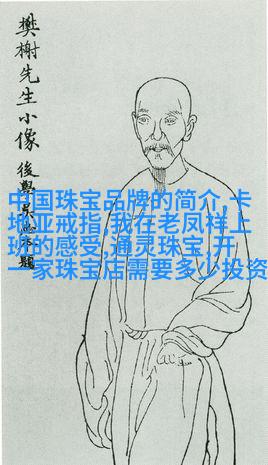 樊榭先生小像
後學
中国珠宝品牌的简介,卡
地亚戒指,我在老凤祥上
班的感受,通灵珠宝,开
一家珠宝店需要多少投资